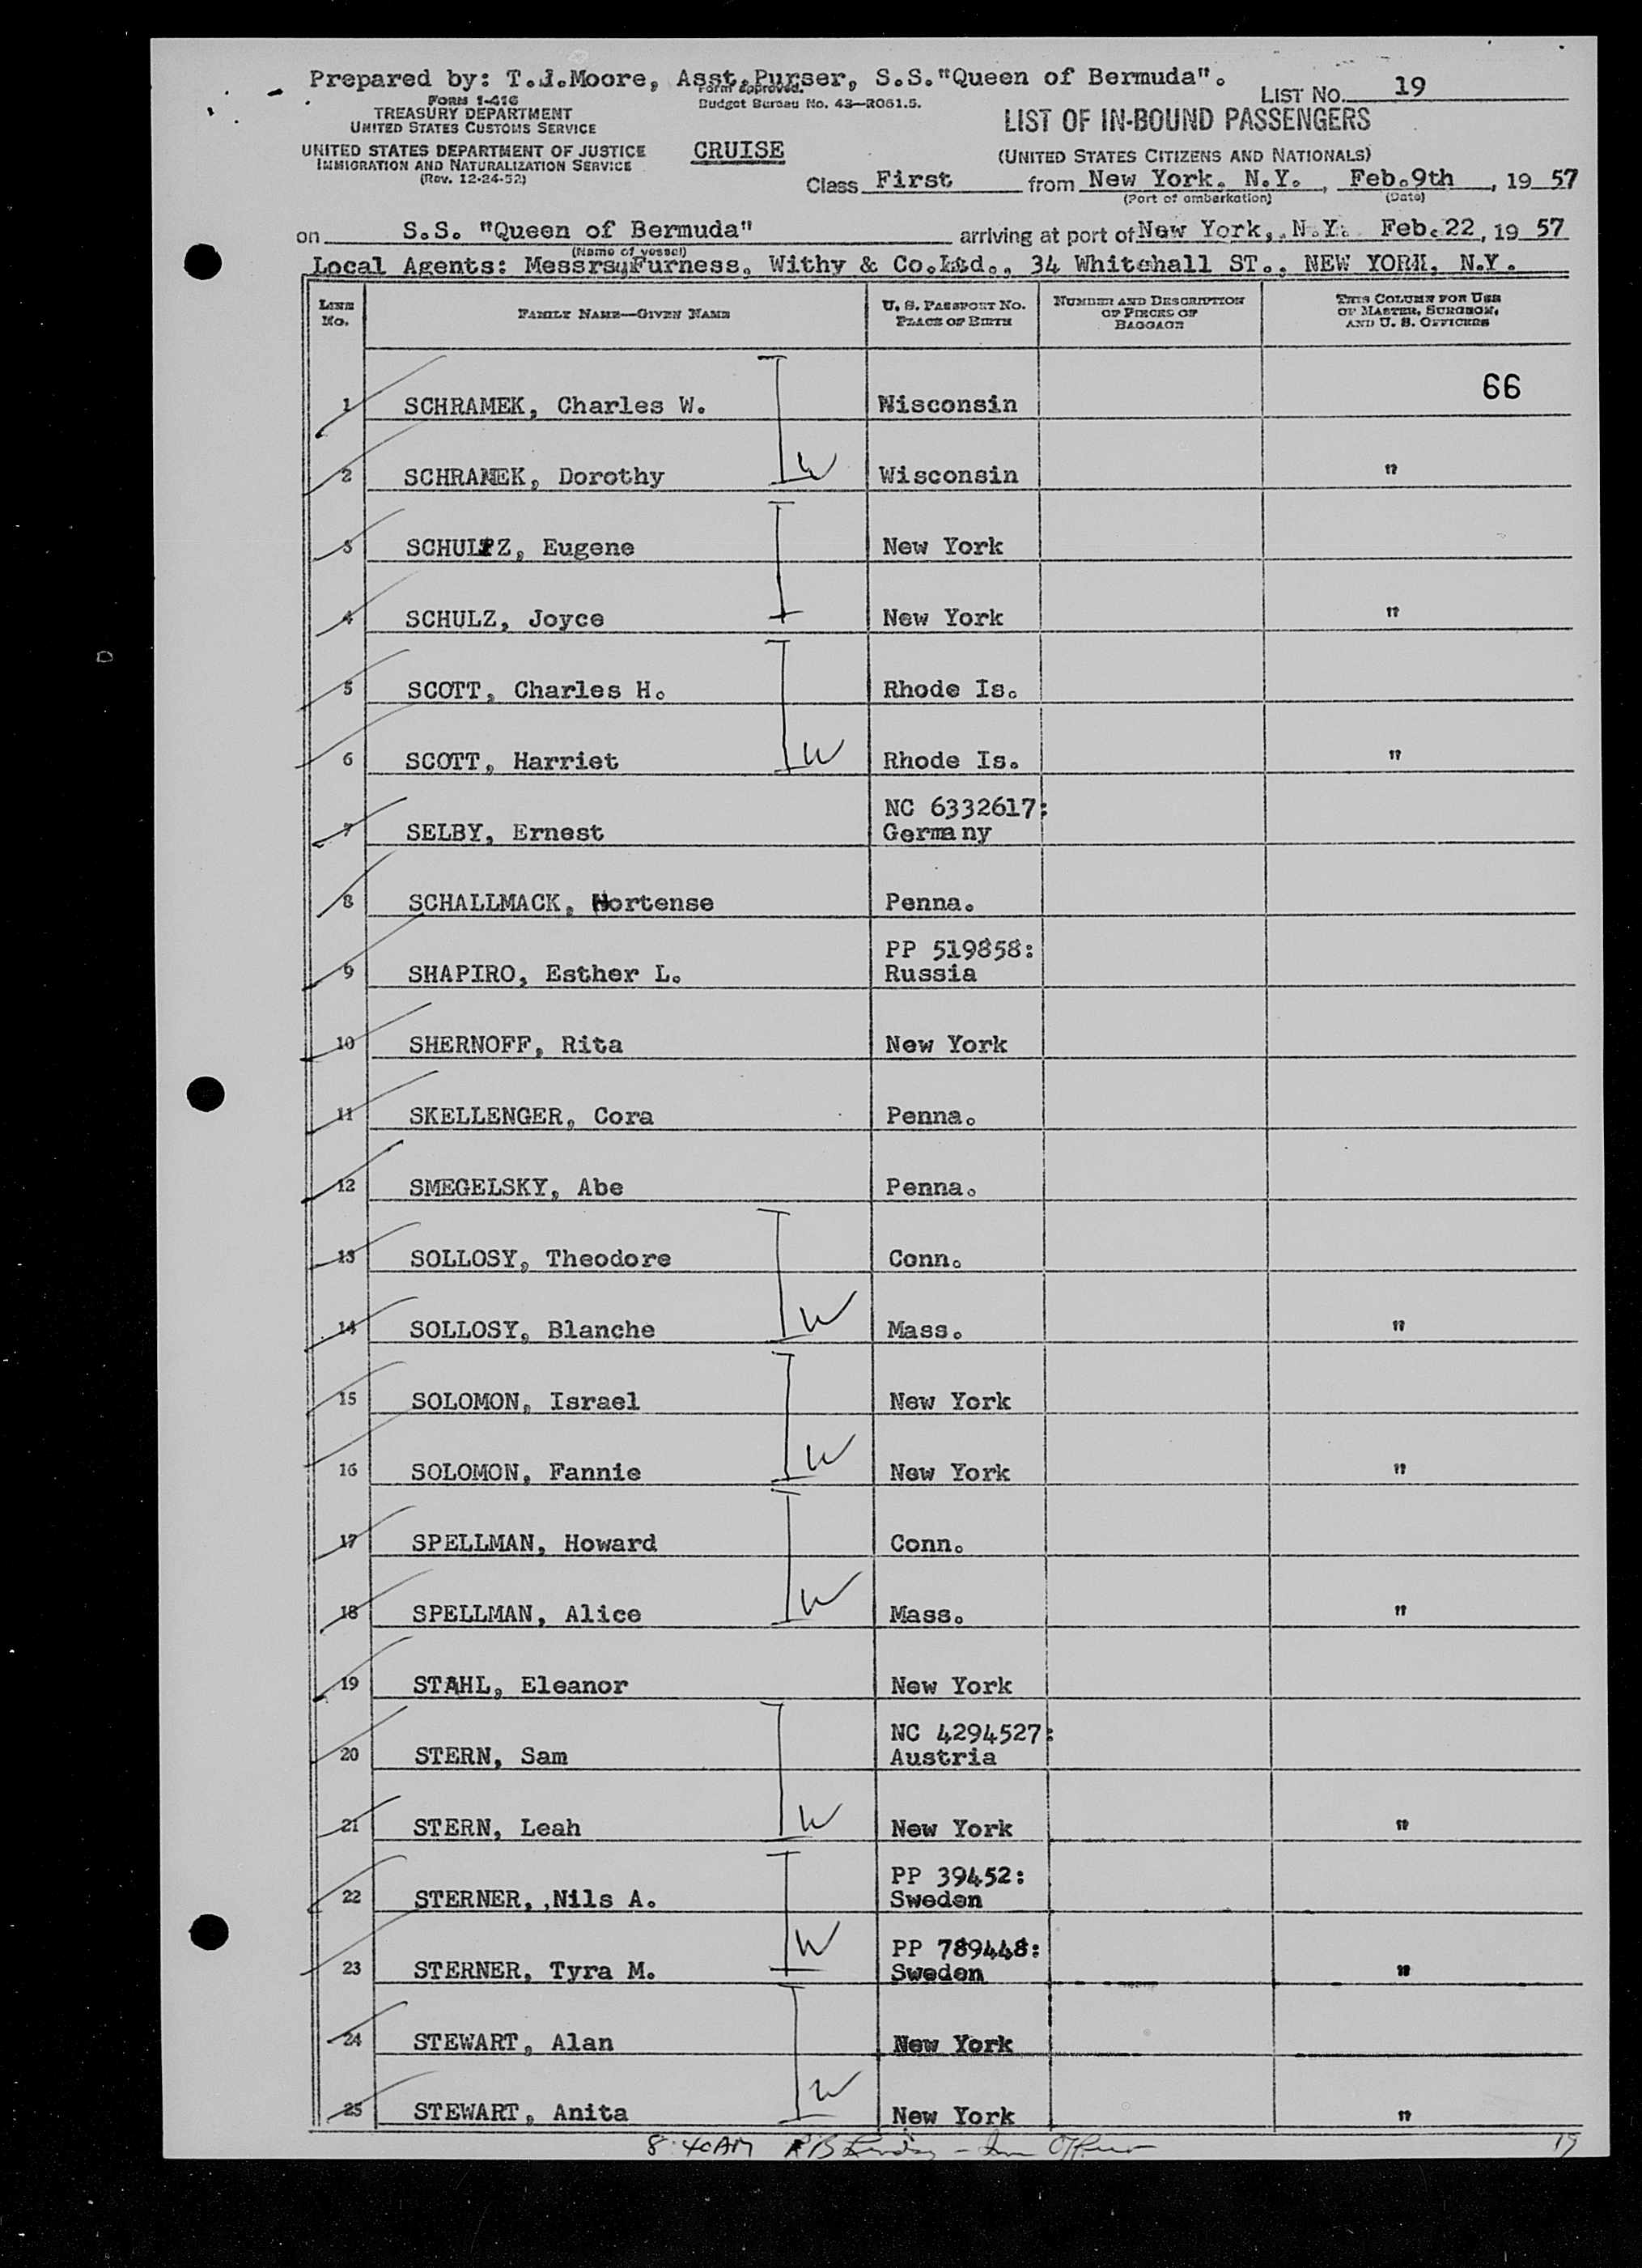 Prepared by: T.J.Moore, Asst.Purser, S.S."Queen of Bermuda".
Form approved.
Budget Bureau No. 43—R051.5.
FORM I-416
TREASURY DEPARTMENT
UNITED STATES CUSTOMS SERVICE
UNITED STATES DEPARTMENT OF JUSTICE
IMMIGRATION AND NATURALIZATION SERVICE
(Rev. 12-24-52)
CRUISE
LIST NO. 19
LIST OF IN-BOUND PASSENGERS
(UNITED STATES CITIZENS AND NATIONALS)
Class First from New York. N.Y. , Feb.9th , 19 57
(Port of embarkation) (Date)
on S.S. "Queen of Bermuda" arriving at port of New York, N.Y. Feb.22, 19 57
(Name of vessel)
Local Agents: Messrs.Furness, Withy & Co.Ltd., 34 Whitehall ST., NEW YORK, N.Y.
LINE NO. FAMILY NAME—GIVEN NAME U. S. PASSPORT NO. PLACE OF BIRTH NUMBER AND DESCRIPTION OF PIECES OF BAGGAGE THIS COLUMN FOR USE OF MASTER, SURGEON, AND U. S. OFFICERS
66
1 SCHRAMEK, Charles W. Wisconsin
2 SCHRAMEK, Dorothy W Wisconsin "
3 SCHULZ, Eugene New York
4 SCHULZ, Joyce New York "
5 SCOTT, Charles H. Rhode Is.
6 SCOTT, Harriet W Rhode Is. "
NC 6332617:
7 SELBY, Ernest Germany
8 SCHALLMACK, Hortense Penna.
PP 519858:
9 SHAPIRO, Esther L. Russia
10 SHERNOFF, Rita New York
11 SKELLENGER, Cora Penna.
12 SMEGELSKY, Abe Penna.
13 SOLLOSY, Theodore Conn.
14 SOLLOSY, Blanche W Mass. "
15 SOLOMON, Israel New York
16 SOLOMON, Fannie W New York "
17 SPELLMAN, Howard Conn.
18 SPELLMAN, Alice W Mass. "
19 STAHL, Eleanor New York
NC 4294527:
20 STERN, Sam Austria
21 STERN, Leah W New York "
PP 39452:
22 STERNER, ,Nils A. Sweden
PP 789448:
23 STERNER, Tyra M. W Sweden "
24 STEWART, Alan New York
25 STEWART, Anita W New York "
8:40AM
19